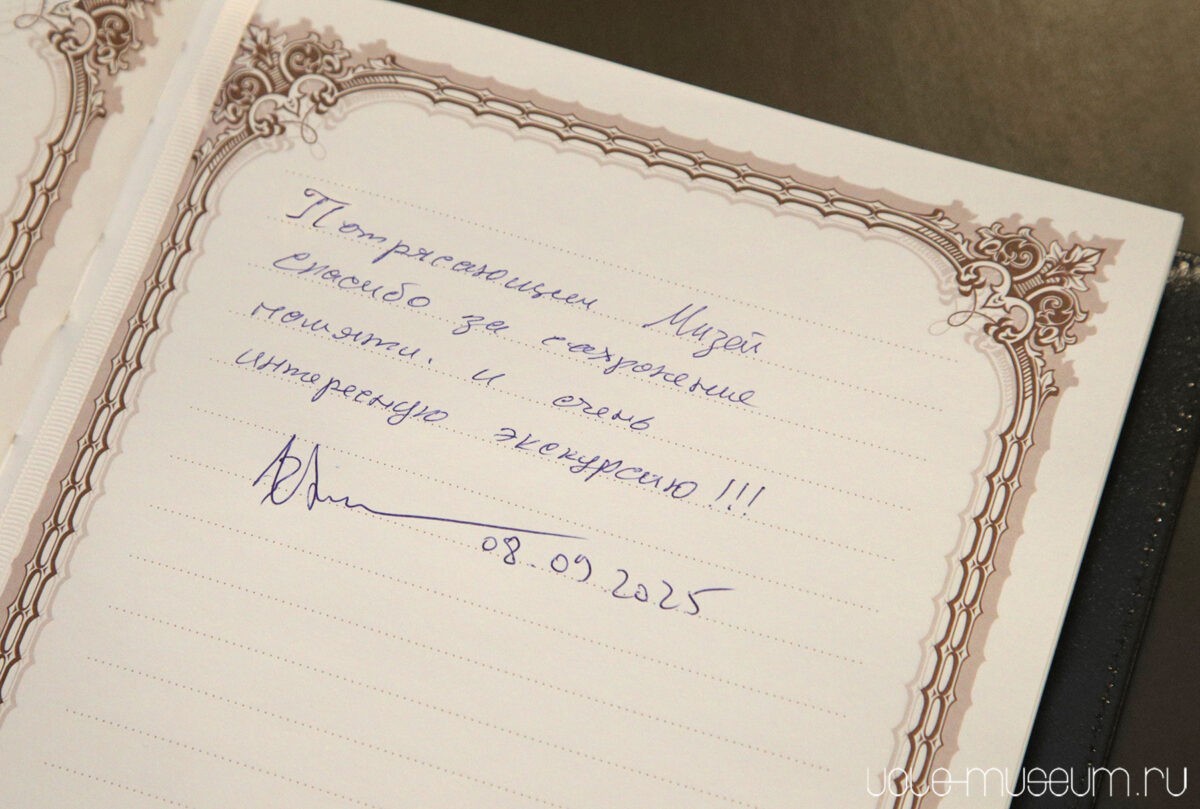 Потрясающий Музей
спасибо за сохранение
памяти. и очень
интересную экскурсию!!!
08.09.2025
uole-museum.ru